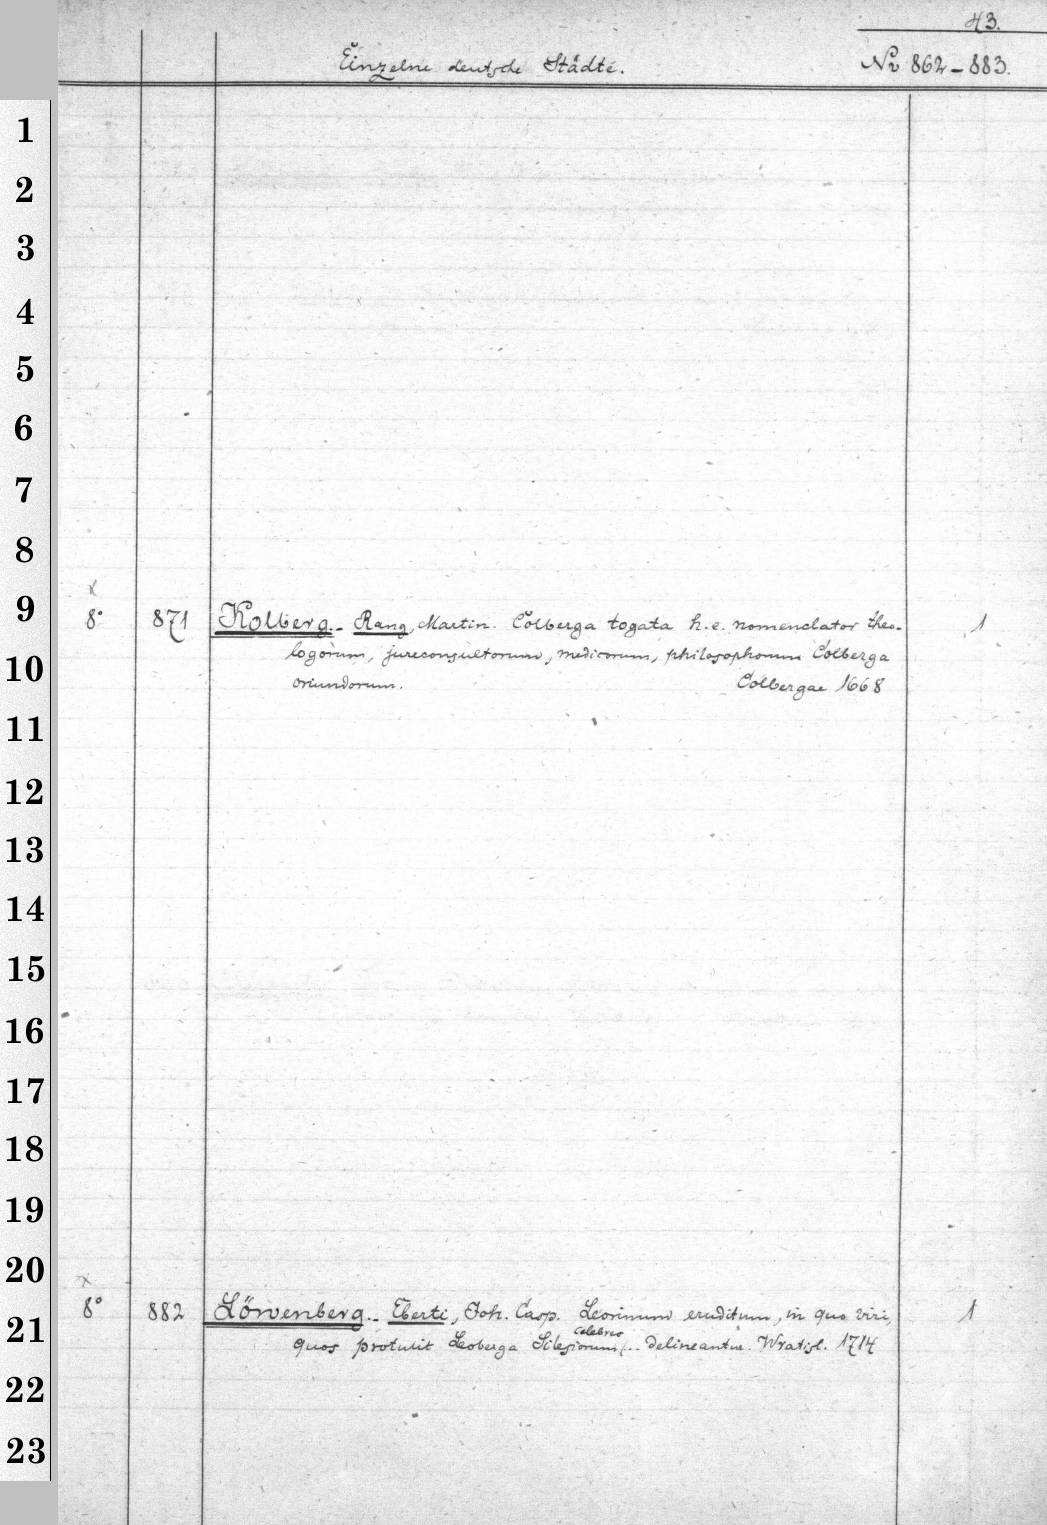 43.
Einzelne deutsche Städte. No 862-883.
1
2
3
4
5
6
7
8
x
9 8° 871 Kolberg. - Rang, Martin. Colberga togata h. e. nomenclator theo- 1
10 logorum, jureconsultorum, medicorum, philosophorum Colberga
oriundorum. Colbergae 1668
11
12
13
14
15
16
17
18
19
20
x
8° 882 Löwenberg. - Eberti, Joh. Casp. Leorinum eruditum, in quo viri, 1
celebres
21 quos protulit Leoberga Silesiorum, ... delineantur. Wratisl. 1714
22
23